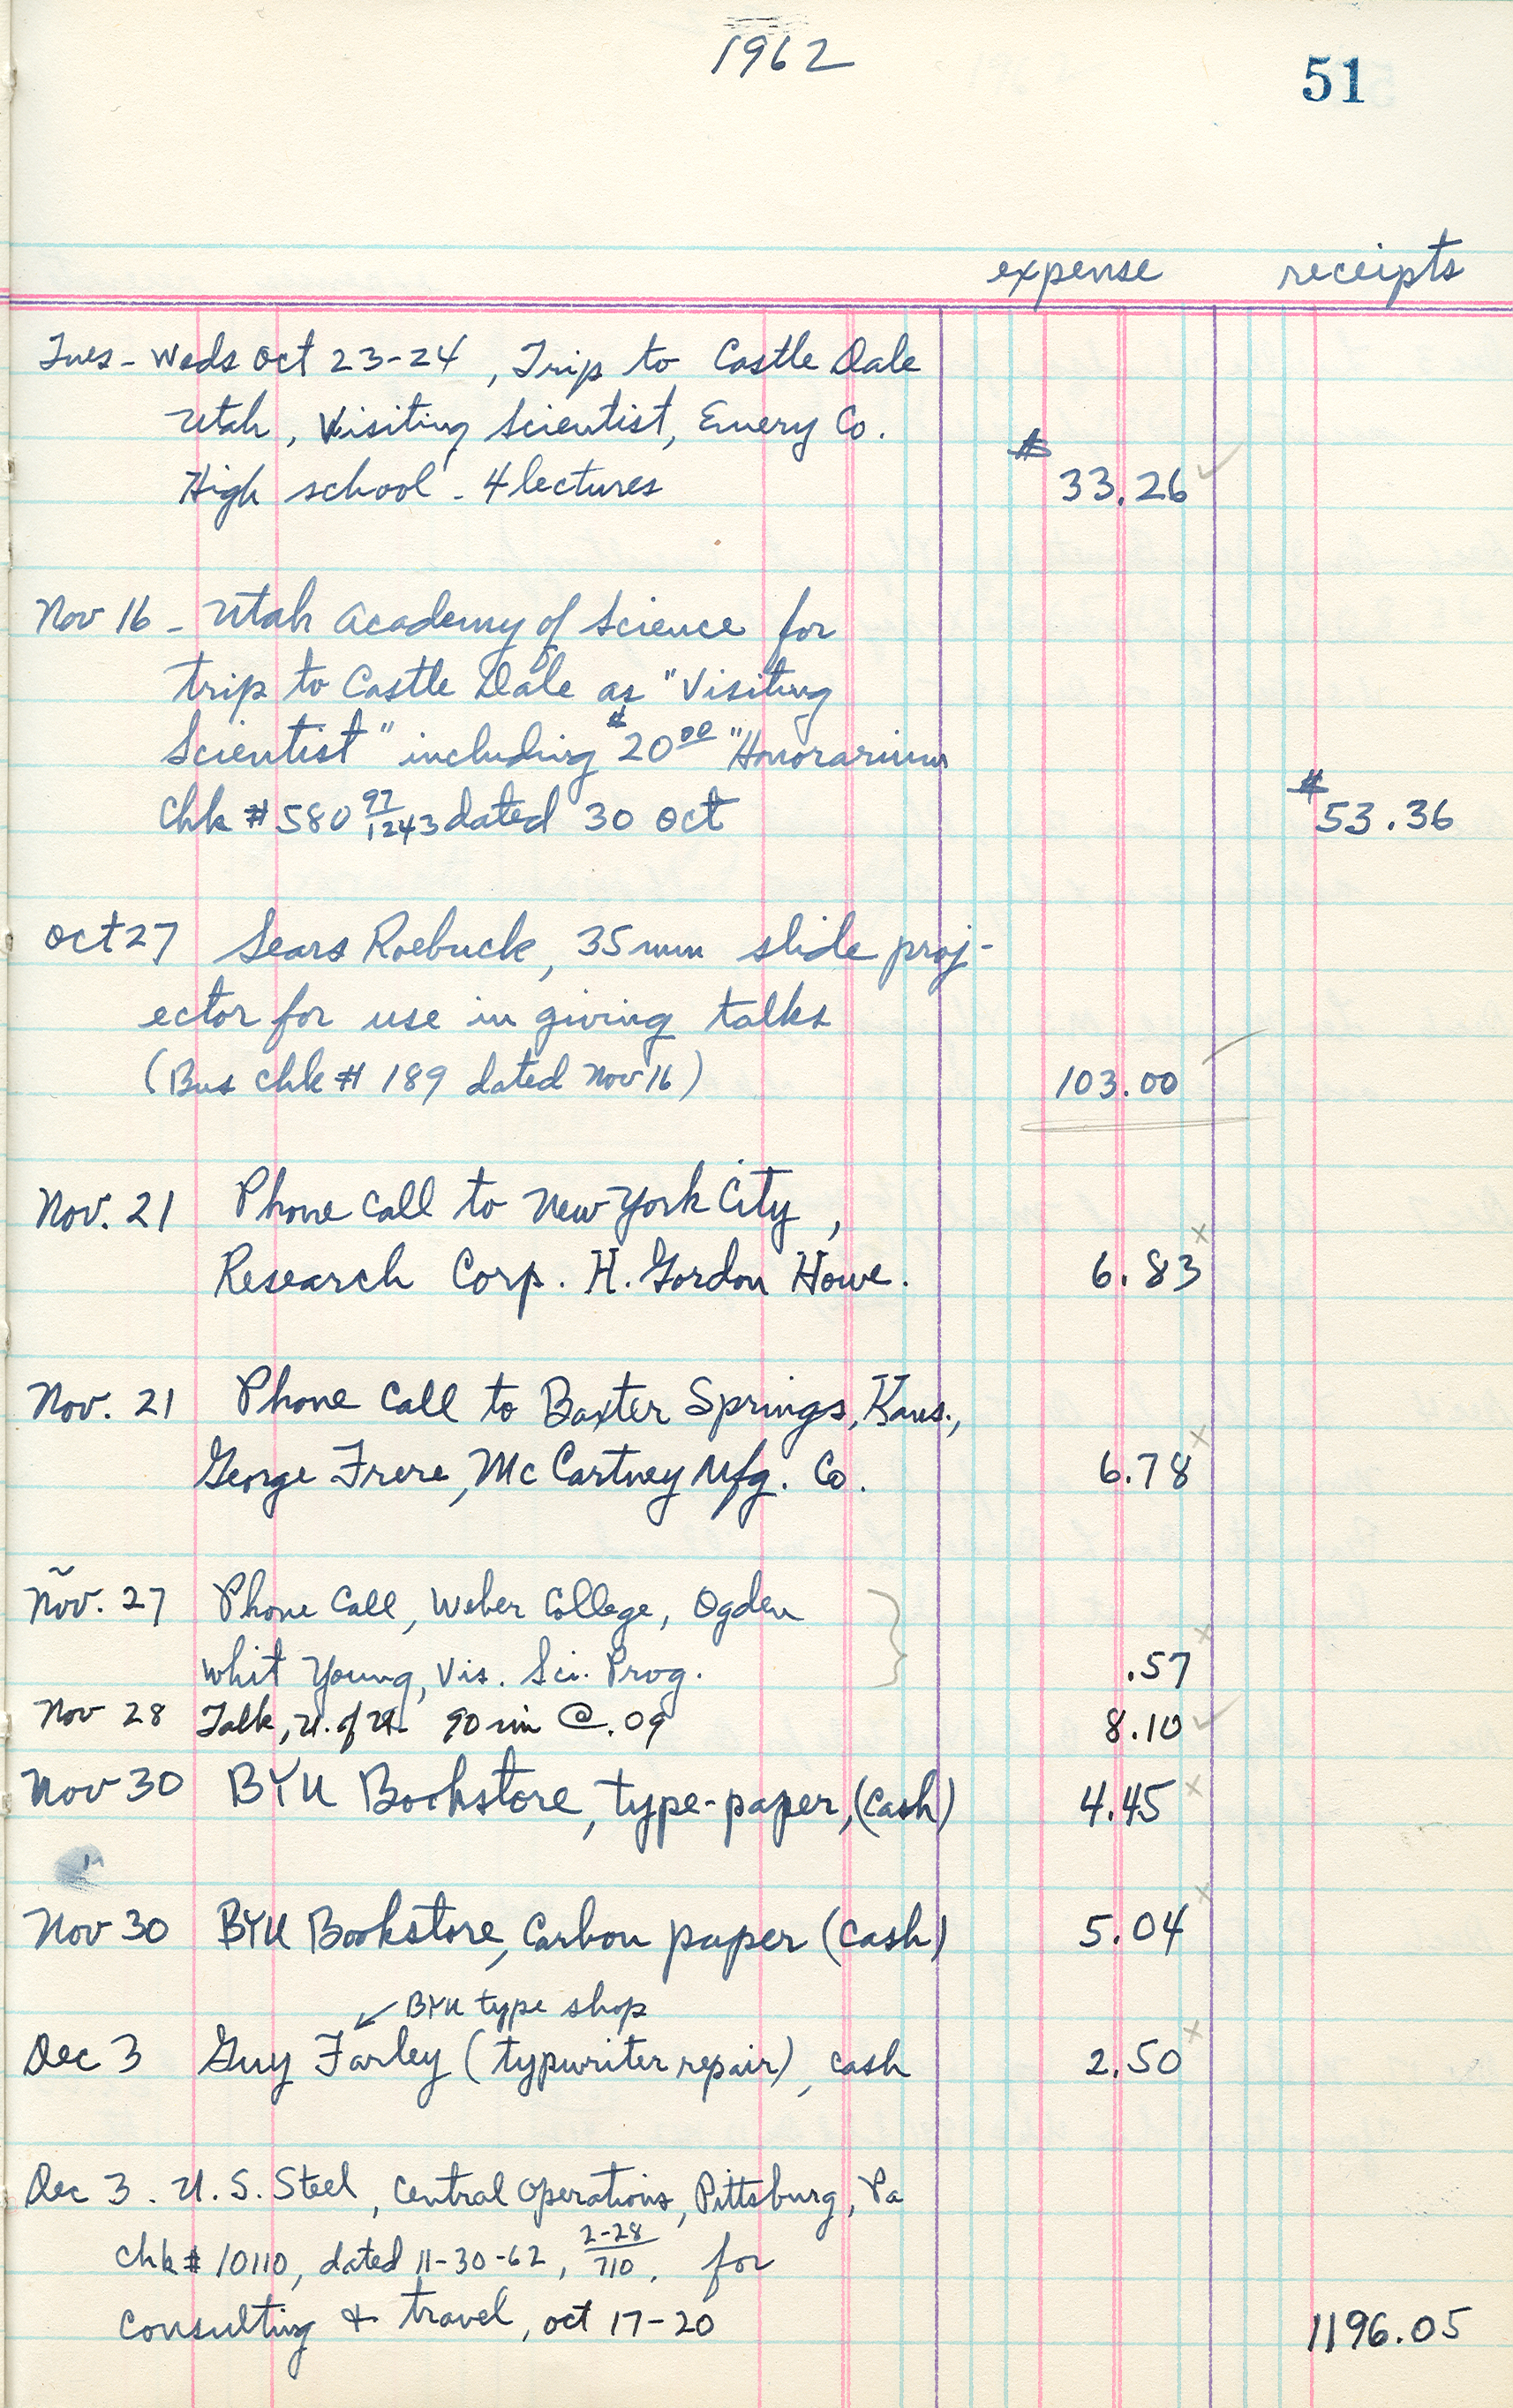 1962
51
expense receipts
Tues - Weds Oct 23-24, Trip to Castle Dale
Utah, Visiting Scientist, Emery Co.
High school - 4 lectures $33.26 ✓
Nov 16 - Utah Academy of Science for
trip to Castle Dale as "Visiting
Scientist" including $20.00 "Honorarium
Chk # 580 97/1243 dated 30 Oct $53.36
Oct 27 Sears Roebuck, 35mm slide proj-
ector for use in giving talks
(Bus chk # 189 dated Nov 16) 103.00
Nov. 21 Phone Call to New York City,
Research Corp. H. Gordon Howe. 6.83 x
Nov. 21 Phone Call to Baxter Springs, Kans.,
George Frere, McCartney Mfg. Co. 6.78 x
Nov. 27 Phone Call, Weber College, Ogden
Whit Young, Vis. Sci. Prog. .57 x
Nov 28 Talk, U. of U. 90 mi @ .09 8.10 ✓
Nov 30 BYU Bookstore, type-paper, (cash) 4.45 x
Nov 30 BYU Bookstore, Carbon paper (cash) 5.04 x
BYU type shop
Dec 3 Guy Farley (typwriter repair), cash 2.50 x
Dec 3. U.S. Steel, Central Operations, Pittsburg, Pa
chk # 10110, dated 11-30-62, 2-28/710, for
Consulting & travel, Oct 17-20 1196.05